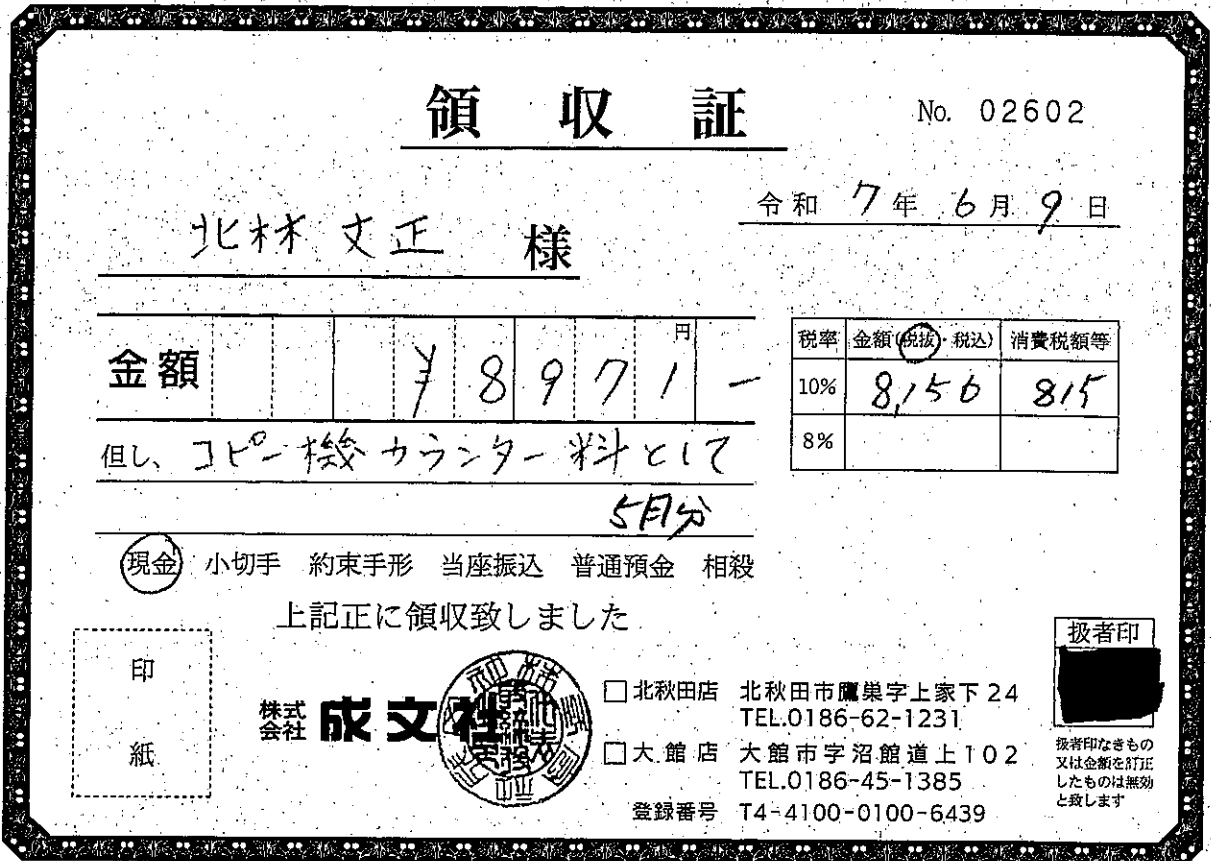 領収証
No. 02602
令和 7年 6月 9日
北林 丈正 様
金額 ¥8971-
円
税率 金額(税抜・税込) 消費税額等
10% 8,156 815
8%
但し、コピー機カウンター料として
5月分
現金 小切手 約束手形 当座振込 普通預金 相殺
上記正に領収致しました
印紙
株式会社 成文社
□北秋田店 北秋田市鷹巣字上家下24
TEL.0186-62-1231
□大館店 大館市字沼館道上102
TEL.0186-45-1385
登録番号 T4-4100-0100-6439
扱者印
扱者印なきもの
又は金額を訂正
したものは無効
と致します